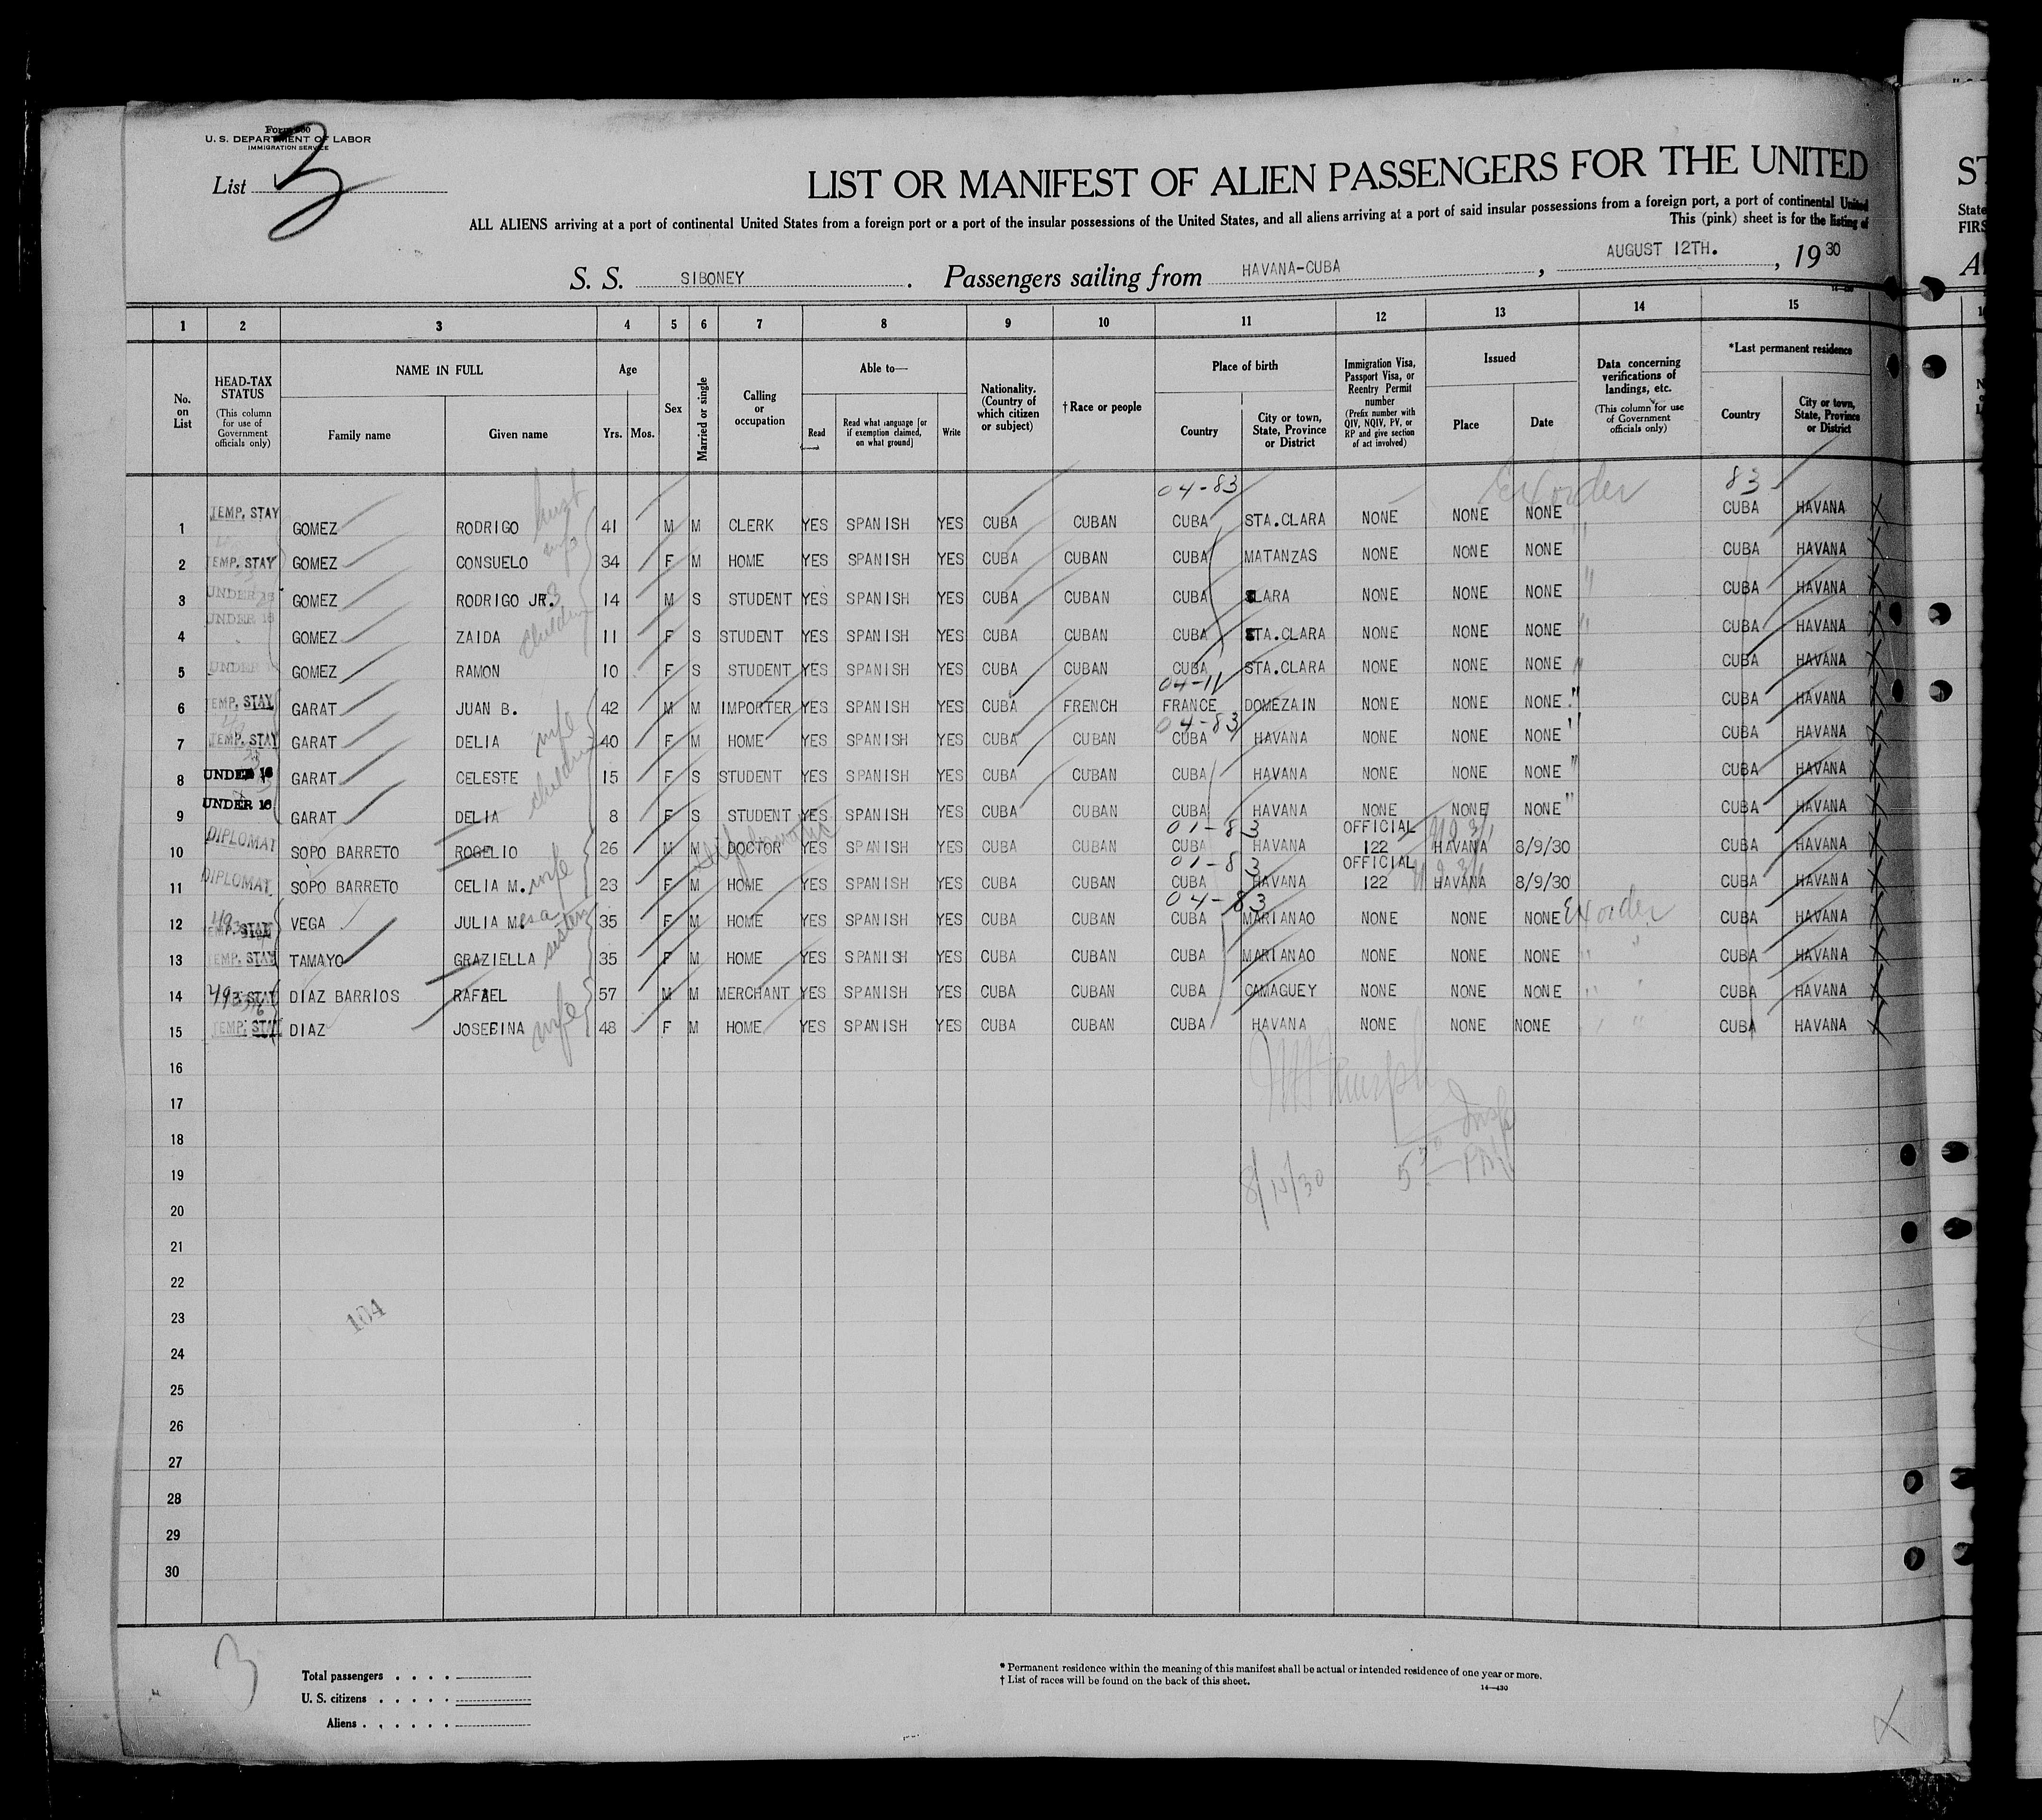 Form 500
U. S. DEPARTMENT OF LABOR
IMMIGRATION SERVICE
List 3
LIST OR MANIFEST OF ALIEN PASSENGERS FOR THE UNITED
ALL ALIENS arriving at a port of continental United States from a foreign port or a port of the insular possessions of the United States, and all aliens arriving at a port of said insular possessions from a foreign port, a port of continental United
This (pink) sheet is for the listing of
S. S. SIBONEY . Passengers sailing from HAVANA-CUBA , AUGUST 12TH. , 19 30
1 2 3 4 5 6 7 8 9 10 11 12 13 14 15
No. on List
HEAD-TAX STATUS (This column for use of Government officials only)
NAME IN FULL
Family name
Given name
Age
Yrs. Mos.
Sex
Married or single
Calling or occupation
Able to—
Read
Read what language [or if exemption claimed, on what ground]
Write
Nationality. (Country of which citizen or subject)
† Race or people
Place of birth
Country
City or town, State, Province or District
Immigration Visa, Passport Visa, or Reentry Permit number (Prefix number with QIV, NQIV, PV, or RP and give section of act involved)
Issued
Place
Date
Data concerning verifications of landings, etc. (This column for use of Government officials only)
*Last permanent residence
Country
City or town, State, Province or District
04-83 Ex order 83
1 TEMP. STAY GOMEZ RODRIGO 41 M M CLERK YES SPANISH YES CUBA CUBAN CUBA STA.CLARA NONE NONE NONE CUBA HAVANA
2 TEMP. STAY GOMEZ CONSUELO wife 34 F M HOME YES SPANISH YES CUBA CUBAN CUBA MATANZAS NONE NONE NONE " CUBA HAVANA
3 UNDER 16 GOMEZ RODRIGO JR. 3 14 M S STUDENT YES SPANISH YES CUBA CUBAN CUBA SLARA NONE NONE NONE " CUBA HAVANA
4 UNDER 16 GOMEZ ZAIDA children 11 F S STUDENT YES SPANISH YES CUBA CUBAN CUBA STA.CLARA NONE NONE NONE " CUBA HAVANA
5 UNDER GOMEZ RAMON 10 F S STUDENT YES SPANISH YES CUBA CUBAN CUBA STA.CLARA NONE NONE NONE " CUBA HAVANA
04-11
6 TEMP. STAY GARAT JUAN B. 42 M M IMPORTER YES SPANISH YES CUBA FRENCH FRANCE DOMEZAIN NONE NONE NONE " CUBA HAVANA
04-83
7 TEMP. STAY GARAT DELIA wife 40 F M HOME YES SPANISH YES CUBA CUBAN CUBA HAVANA NONE NONE NONE " CUBA HAVANA
8 UNDER 16 GARAT CELESTE children 15 F S STUDENT YES SPANISH YES CUBA CUBAN CUBA HAVANA NONE NONE NONE " CUBA HAVANA
9 UNDER 16 GARAT DELIA 8 F S STUDENT YES SPANISH YES CUBA CUBAN CUBA HAVANA NONE NONE NONE " CUBA HAVANA
01-83 OFFICIAL
10 DIPLOMAT SOPO BARRETO ROGELIO 26 M M DOCTOR YES SPANISH YES CUBA CUBAN CUBA HAVANA 122 HAVANA 8/9/30 CUBA HAVANA
01-83 OFFICIAL
11 DIPLOMAT SOPO BARRETO CELIA M. wife 23 F M HOME YES SPANISH YES CUBA CUBAN CUBA HAVANA 122 HAVANA 8/9/30 CUBA HAVANA
04-83
12 TEMP. STAY VEGA JULIA M. 35 F M HOME YES SPANISH YES CUBA CUBAN CUBA MARIANAO NONE NONE NONE Ex order CUBA HAVANA
13 TEMP. STAY TAMAYO GRAZIELLA sisters 35 F M HOME YES SPANISH YES CUBA CUBAN CUBA MARIANAO NONE NONE NONE " " CUBA HAVANA
14 STAY DIAZ BARRIOS RAFAEL 57 M M MERCHANT YES SPANISH YES CUBA CUBAN CUBA CAMAGUEY NONE NONE NONE " " CUBA HAVANA
15 TEMP. STAY DIAZ JOSEFINA wife 48 F M HOME YES SPANISH YES CUBA CUBAN CUBA HAVANA NONE NONE NONE " CUBA HAVANA
16
17
18
19
20
21
22
23
24
25
26
27
28
29
30
Insp
8/15/30
104
3
Total passengers . . . .
U. S. citizens . . . . .
Aliens . . . . . .
* Permanent residence within the meaning of this manifest shall be actual or intended residence of one year or more.
† List of races will be found on the back of this sheet.
14—430